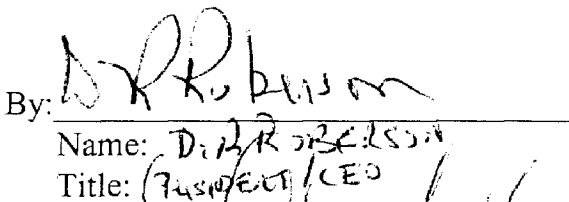 By: D R Roberson
Name: D. R ROBERSON
Title: President/CEO